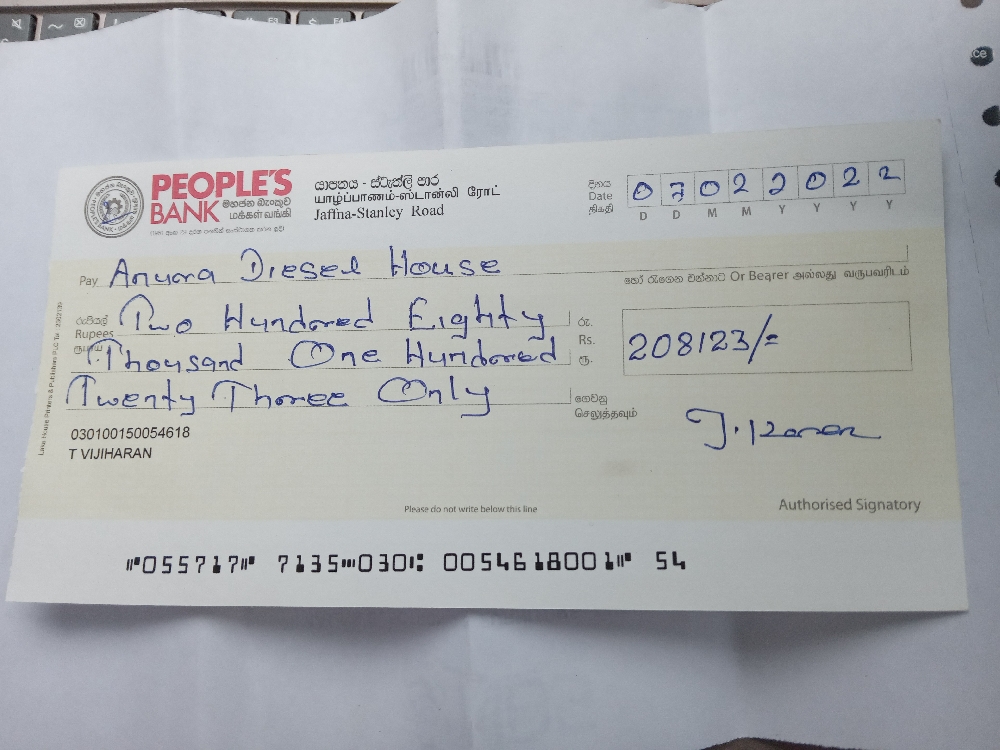 PEOPLE'S
BANK මහජන බැංකුව
மக்கள் வங்கி
යාපනය - ස්ටැන්ලි පාර
யாழ்ப்பாணம்-ஸ்டான்லி ரோட்
Jaffna-Stanley Road
දිනය
Date
திகதி
0 7 0 2 2 0 2 2
D D M M Y Y Y Y
Pay Anura Diesel House
හෝ රැගෙන එන්නාට Or Bearer அல்லது வருபவரிடம்
රුපියල්
Rupees
ரூபாய்
Two Hundred Eighty
Thousand One Hundred
Twenty Three Only
රු.
Rs.
ரூ.
208123/=
ගෙවනු
செலுத்தவும்
030100150054618
T VIJIHARAN
Please do not write below this line
Authorised Signatory
⑈055717⑈ 7135⑉030⑆ 0054618001⑈ 54